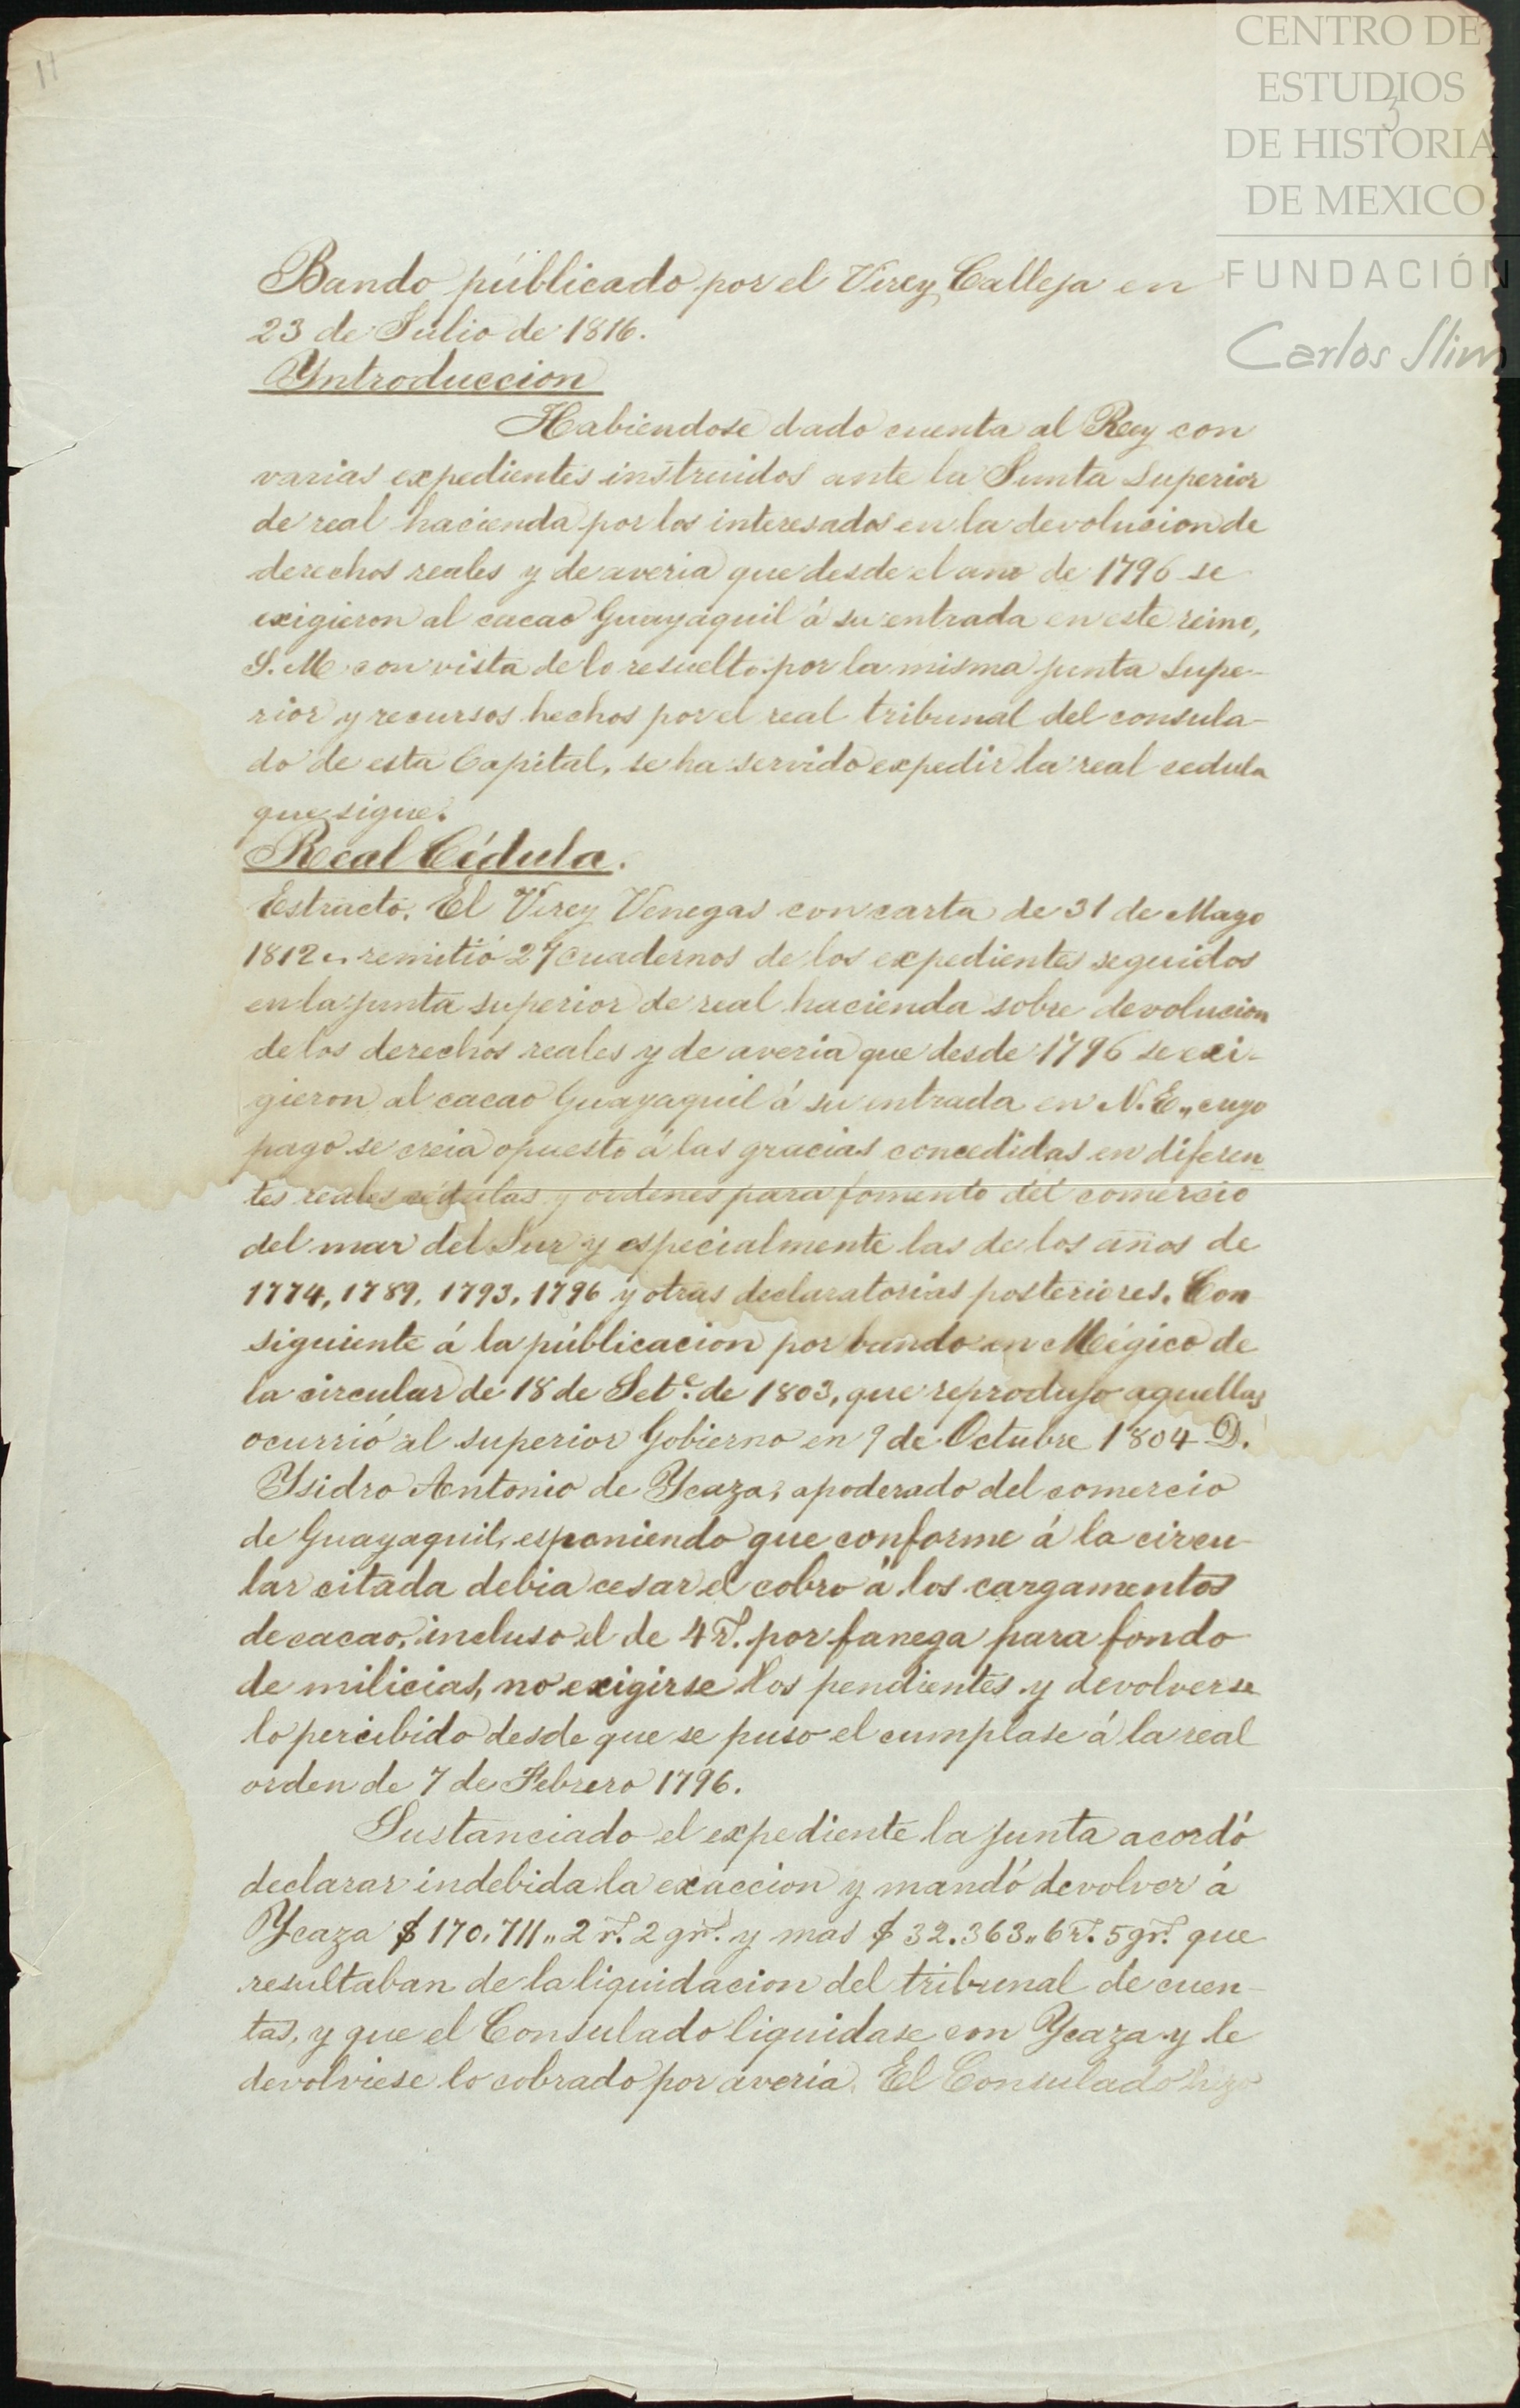 11
CENTRO DE
ESTUDIOS
3
DE HISTORIA
DE MEXICO
FUNDACIÓN
Carlos Slim
Bando públicado por el Virey Calleja en
23 de Julio de 1816.
Yntroduccion
Habiendose dado cuenta al Rey con
varias expedientes instruidos ante la Junta Superior
de real hacienda por los interesados en la devolucion de
derechos reales y de averia que desde el ano de 1796 se
exigieron al cacao Guayaquil á su entrada en este reino,
S. M. con vista de lo resuelto por la misma junta Supe-
rior y recursos hechos por el real tribunal del consula-
do de esta Capital, se ha servido expedir la real cedula
que sigue.
Real Cédula.
Estracto. El Virey Venegas con carta de 31 de Mayo
1812 remitió 27 cuadernos de los expedientes seguidos
en la junta superior de real hacienda sobre devolucion
de los derechos reales y de averia que desde 1796 se exi-
gieron al cacao Guayaquil á su entrada en N. E., cuyo
pago se creia opuesto á las gracias concedidas en diferen
tes reales cédulas y ordenes para fomento del comercio
del mar del Sur y especialmente las de los años de
1774, 1789, 1793, 1796 y otras declaratorias posteriores. Con
siguiente á la públicacion por bando en Mégico de
la circular de 18 de Set.e de 1803, que reprodujo aquellas
ocurrió al superior Gobierno en 9 de Octubre 1804 D.
Ysidro Antonio de Ycaza, apoderado del comercio
de Guayaquil, esponiendo que conforme á la circu-
lar citada debia cesar el cobro á los cargamentos
de cacao, incluso el de 4 r.s por fanega para fondo
de milicias, no exigirse los pendientes y devolverse
lo percibido desde que se puso el cumplase á la real
orden de 7 de Febrero 1796.
Sustanciado el expediente la junta acordó
declarar indebida la exaccion y mandó devolver á
Ycaza $ 170.711,, 2 r.s 2 gr.s y mas $ 32.363,, 6 r.s 5 gr.s que
resultaban de la liquidacion del tribunal de cuen-
tas, y que el Consulado liquidase con Ycaza y le
devolviese lo cobrado por avería. El Consulado hizo